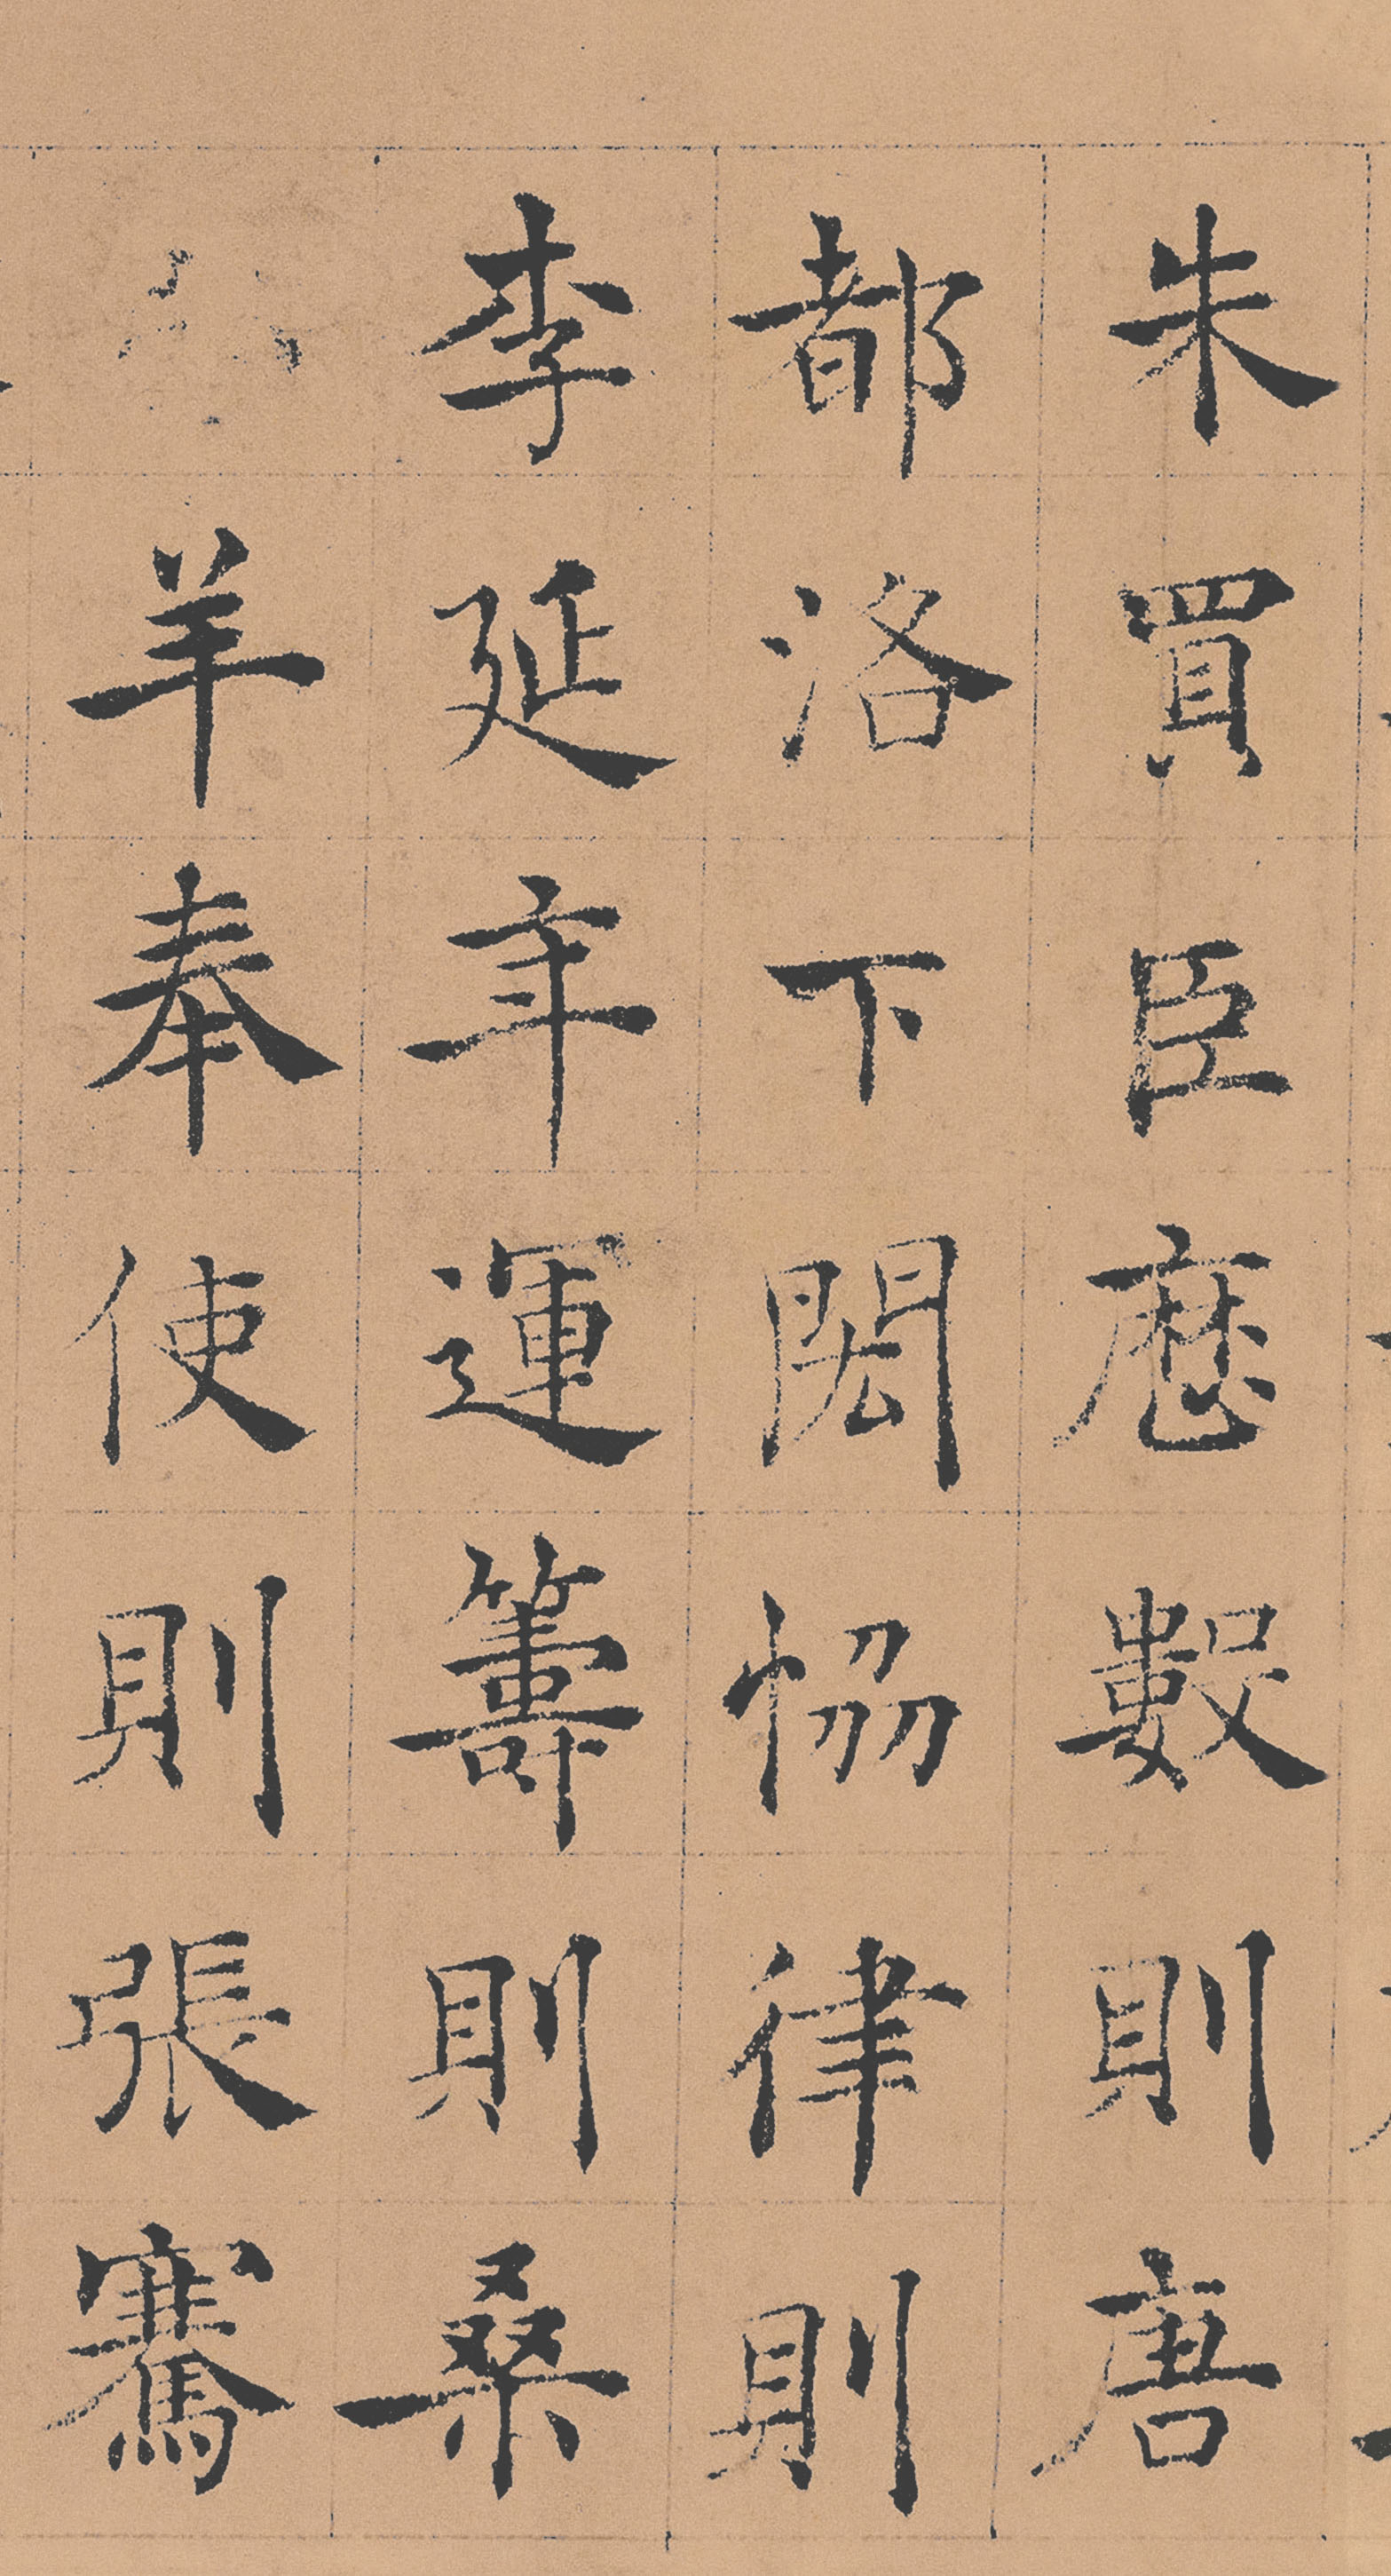 朱買臣歷數則唐
都洛下閎恊律則
李延年運籌則桑
羊奉使則張騫